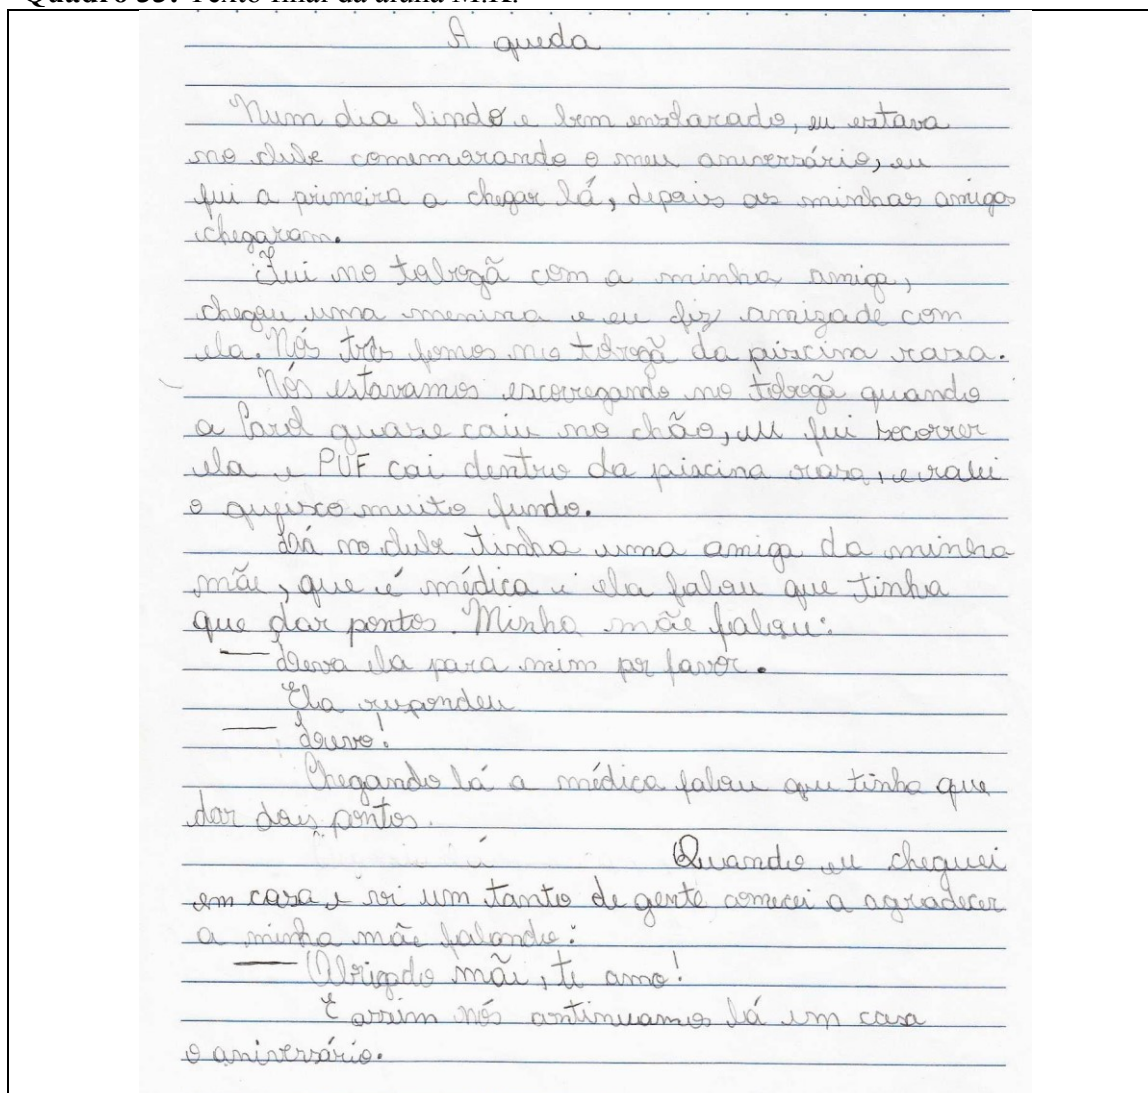 Quadro 33: Texto final da aluna M.R.
A queda
Num dia lindo e bem ensolarado, eu estava
no clube comemorando o meu aniversário, eu
fui a primeira a chegar lá, depois as minhas amigas
chegaram.
Fui no tobogã com a minha amiga,
chegou uma menina e eu fiz amizade com
ela. Nós três fomos no tobogã da piscina rasa.
Nós estavamos escorregando no tobogã quando
a Carol quase caiu no chão, eu fui socorrer
ela e PUF cai dentro da piscina rasa, e ralei
o queixo muito fundo.
Lá no clube tinha uma amiga da minha
mãe, que é médica e ela falou que tinha
que dar pontos. Minha mãe falou:
— Leva ela para mim por favor.
Ela respondeu
— Levo!
Chegando lá a médica falou que tinha que
dar dois pontos.
Quando eu cheguei
em casa e vi um tanto de gente comecei a agradecer
a minha mãe falando:
— Obrigado mãe, te amo!
E assim nós continuamos lá em casa
o aniversário.